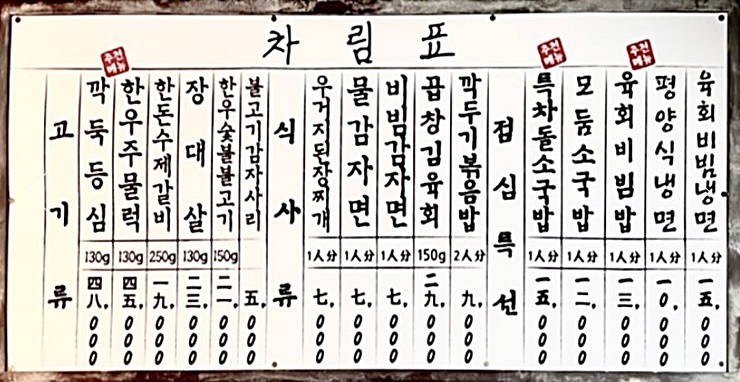 차림표
고기류
추천메뉴
깍둑등심 130g 四八,000
한우주물럭 130g 四五,000
한돈수제갈비 250g 一九,000
장대살 130g 二三,000
한우숯불불고기 150g 二一,000
불고기감자사리 五,000
식사류
우거지된장찌개 1人分 七,000
물감자면 1人分 七,000
비빔감자면 1人分 七,000
곱창김육회 150g 二九,000
깍두기볶음밥 2人分 九,000
점심특선
추천메뉴
특차돌소국밥 1人分 一五,000
모둠소국밥 1人分 一二,000
추천메뉴
육회비빔밥 1人分 一三,000
평양식냉면 1人分 一0,000
육회비빔냉면 1人分 一五,000